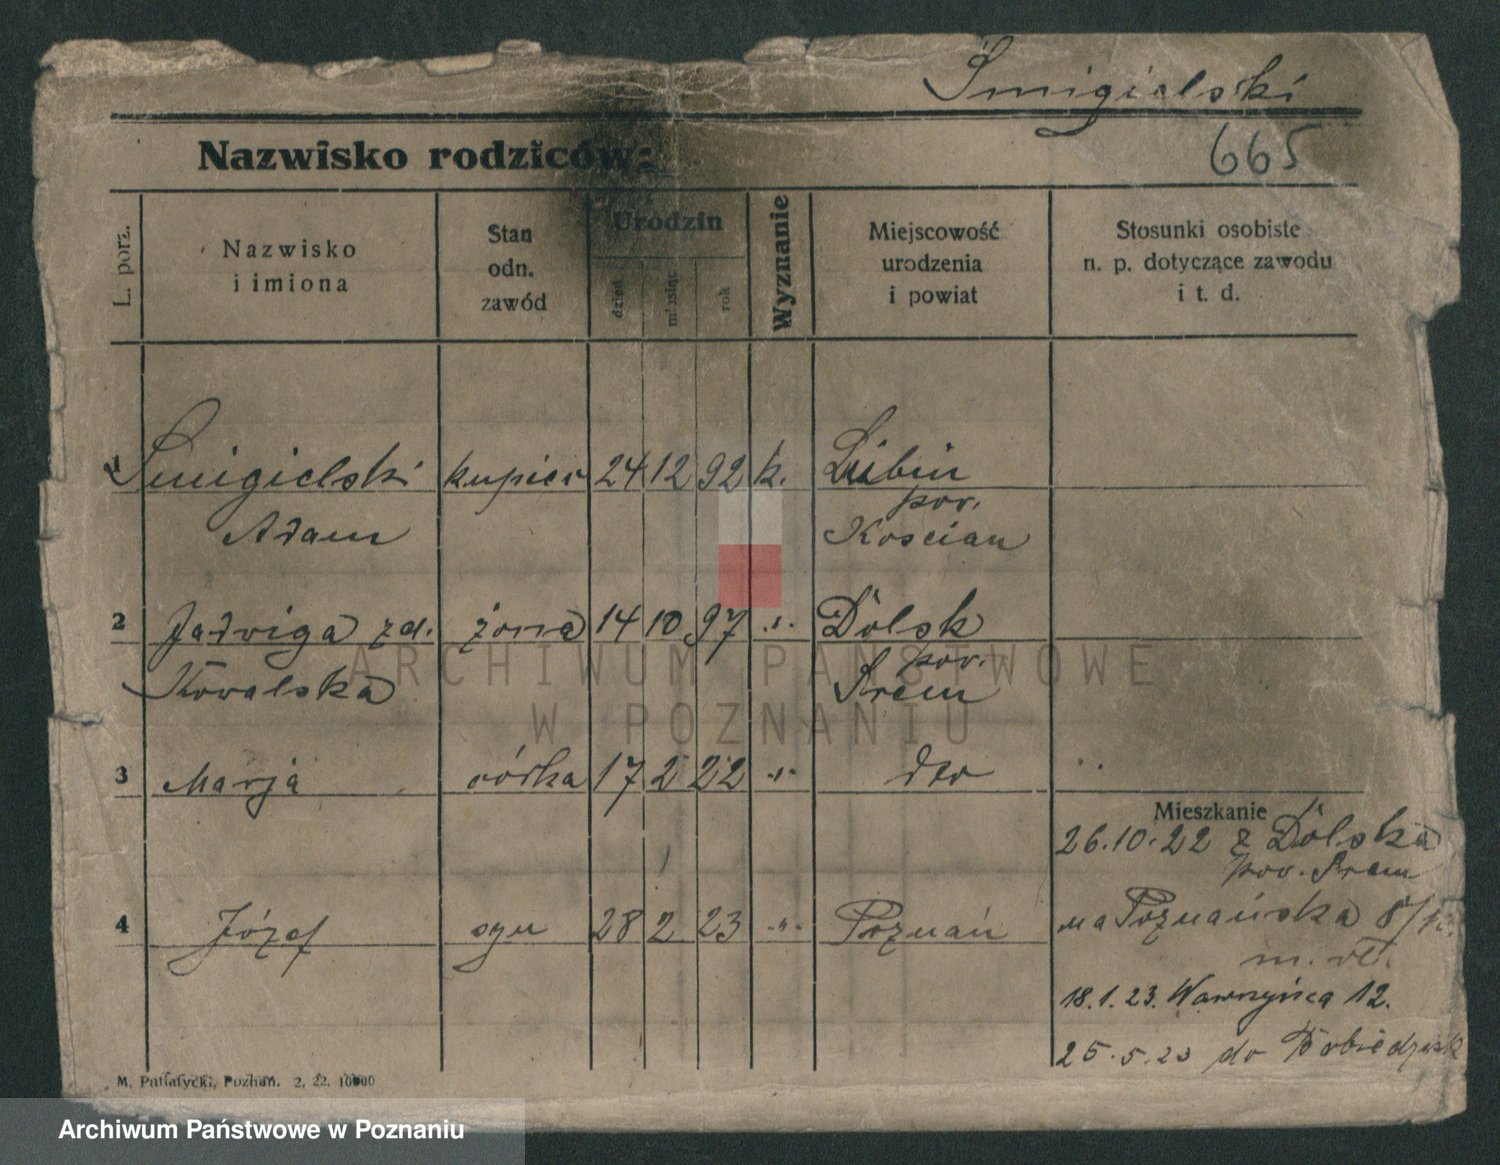 Śmigielski
Nazwisko rodziców:
665
L. porz.
Nazwisko
i imiona
Stan
odn.
zawód
Urodzin
dzień
miesiąc
rok
Wyznanie
Miejscowość
urodzenia
i powiat
Stosunki osobiste
n. p. dotyczące zawodu
i t. d.
1 Śmigielski kupiec 24 12 92 k. Lubin
pow.
Adam Kościan
2 Jadwiga zd. żona 14 10 97 " Dolsk
pow.
Kowalska Śrem
3 Marja córka 17 2 22 " dto
Mieszkanie
26.10.22 z Dolska
pow. Śrem
4 Józef syn 28 2 23 " Poznań
na Poznańska 8/
18.1.23. Wawrzyńca 12.
25.5.23 do Pobiedzisk
M. Putiatycki, Poznań. 2. 22. 10000
ARCHIWUM PAŃSTWOWE
W POZNANIU
Archiwum Państwowe w Poznaniu